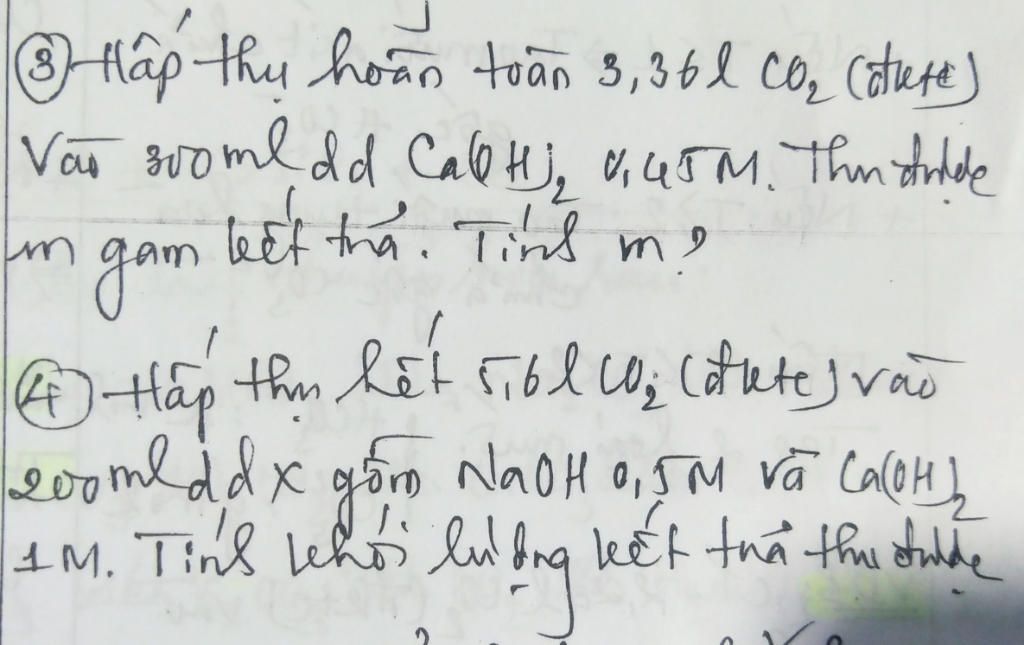 ③ Hấp thụ hoàn toàn 3,36l CO₂ (đktc)
Vào 300ml dd Ca(OH)₂ 0,45M. Thu được
m gam kết tủa. Tính m?
④ Hấp thụ hết 5,6l CO₂ (đktc) vào
200ml dd X gồm NaOH 0,5M và Ca(OH)₂
1M. Tính khối lượng kết tủa thu được